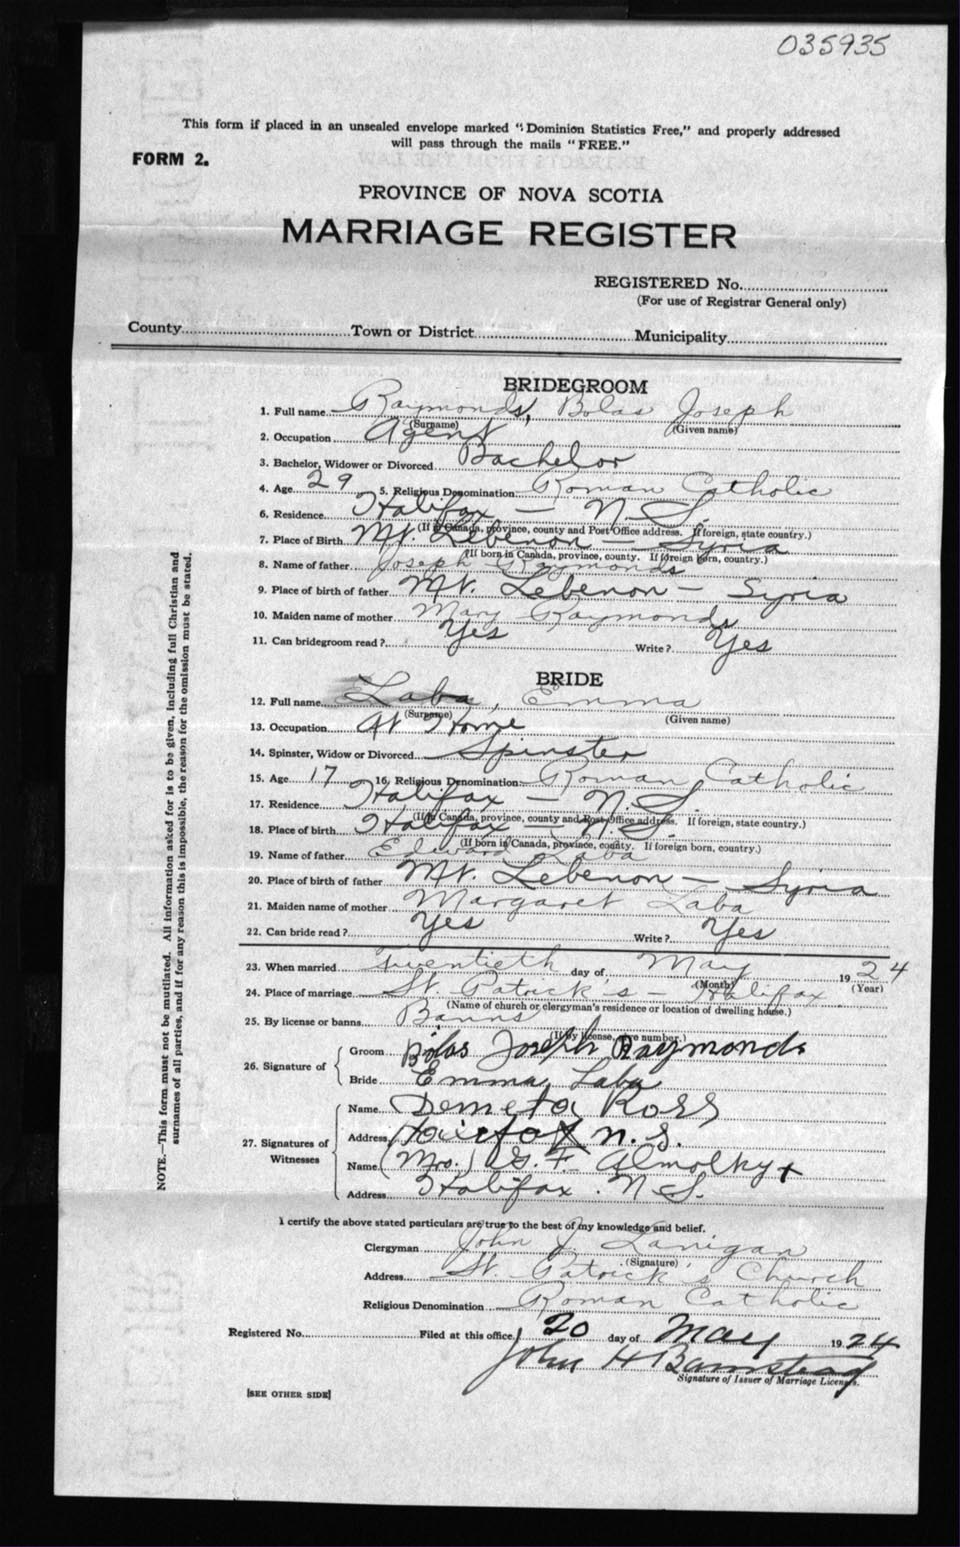 035935
This form if placed in an unsealed envelope marked "Dominion Statistics Free," and properly addressed
will pass through the mails "FREE."
FORM 2.
PROVINCE OF NOVA SCOTIA
MARRIAGE REGISTER
REGISTERED No.
(For use of Registrar General only)
County Town or District Municipality
BRIDEGROOM
1. Full name Raymonds, Bolas Joseph
(Surname) (Given name)
2. Occupation Agent
3. Bachelor, Widower or Divorced Bachelor
4. Age 29 5. Religious Denomination Roman Catholic
6. Residence Halifax - N.S.
(If in Canada, province, county and Post Office address. If foreign, state country.)
7. Place of Birth Mt. Lebenon - Syria
(If born in Canada, province, county. If foreign born, country.)
8. Name of father Joseph Raymonds
9. Place of birth of father Mt. Lebenon - Syria
10. Maiden name of mother Mary Raymonds
11. Can bridegroom read? Yes Write? Yes
BRIDE
12. Full name Laba, Emma
(Surname) (Given name)
13. Occupation At Home
14. Spinster, Widow or Divorced Spinster
15. Age 17 16. Religious Denomination Roman Catholic
17. Residence Halifax - N.S.
(If in Canada, province, county and Post Office address. If foreign, state country.)
18. Place of birth Halifax - N.S.
(If born in Canada, province, county. If foreign born, country.)
19. Name of father Edward Laba
20. Place of birth of father Mt. Lebenon - Syria
21. Maiden name of mother Margaret Laba
22. Can bride read? Yes Write? Yes
23. When married Twentieth day of May 1924
(Month) (Year)
24. Place of marriage St. Patrick's - Halifax
(Name of church or clergyman's residence or location of dwelling house.)
25. By license or banns Banns
(If by license, give number.)
26. Signature of
Groom Bolas Joseph Raymonds
Bride Emma Laba
27. Signatures of Witnesses
Name Demeta Ross
Address Halifax N.S.
Name (Mrs.) G. F.
Address Halifax. N.S.
I certify the above stated particulars are true to the best of my knowledge and belief.
Clergyman John J. Lanigan
(Signature)
Address St. Patrick's Church
Religious Denomination Roman Catholic
Registered No. Filed at this office, 20 day of May 1924
John H Barnstead
Signature of Issuer of Marriage Licenses.
[SEE OTHER SIDE]
NOTE.—This form must not be mutilated. All information asked for is to be given, including full Christian and
surnames of all parties, and if for any reason this is impossible, the reason for the omission must be stated.